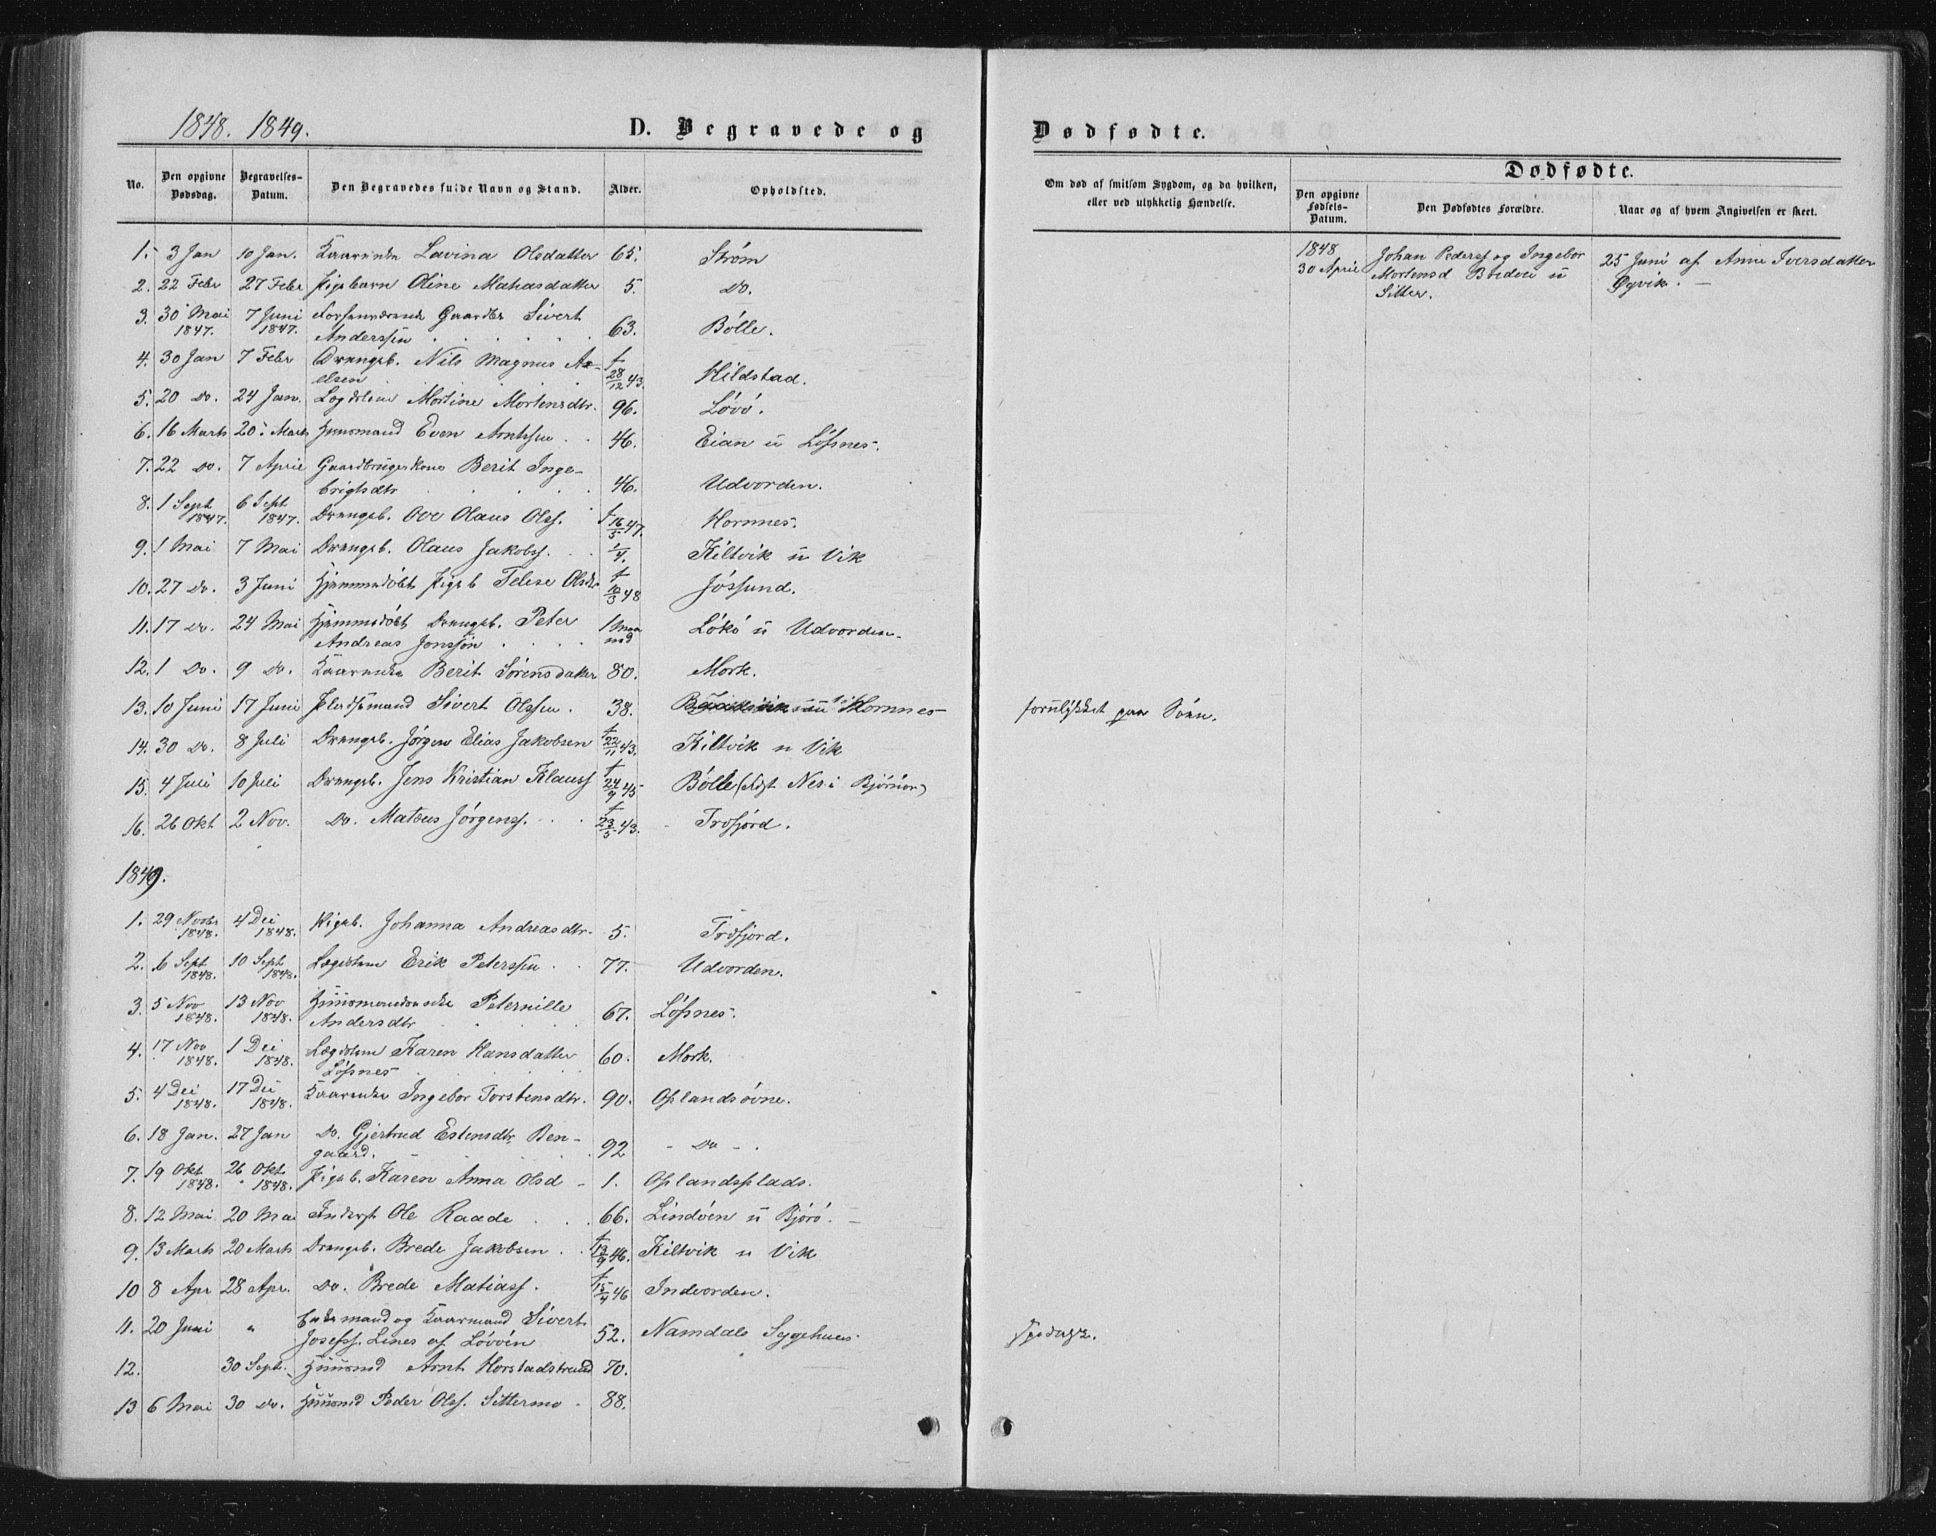 1848. 1849.
D. Begravede og Dødfødte.
No. Den opgivne Dødsdag. Begravelses-Datum. Den Begravedes fulde Navn og Stand. Alder. Opholdsted.
Om død af smitsom Sygdom, og da hvilken, eller ved ulykkelig Hændelse.
Dødfødte.
Den opgivne Fødsels-Datum. Den Dødfødtes Forældre. Naar og af hvem Angivelsen er skeet.
1. 3 Jan 10 Jan. Kaarenke Lavina Olsdatter 65. Strøm
2. 22 Febr 27 Febr Pigebarn Oline Mahasdatter 5. Do.
3. 30 Mai 1847. 7 Juni 1847. Forhenværende Gaardbr Sivert
Anderssen 63. Bölle.
4. 30 Jan 7 Febr Drengeb. Nils Magnus Ax-
elsen f 28/12 43. Hildstad.
5. 20 Do. 24 Jan. Lægdslem Mortine Mortensdtr. 96. Lövö.
6. 16 Marts 20 Marts Huusmand Even Arntssen 46. Eian u Löfsnes.
7. 22 Do. 7 April Gaardbrugerkone Berit Inge-
brigtsdtr 46. Udvorden.
8. 1 Sept 1847. 6 Sept 1847. Drengeb. Ove Olaus Olss. f 16/5 47. Hornnes.
9. 1 Mai 7 Mai Drengeb. Olaus Jakobss. 1/4. Kiltvik u Vik
10. 27 Do. 3 Juni Hjemmedöbt Pigeb Olsdtr f 10/3 48 Jössund.
11. 17 Do. 24 Mai Hjemmedöbt Drengeb. Peter
Andreas Jonssön 1 Maaned Lökö u Udvorden.
12. 1 Do. 9 Do. Kaarenke Berit Sörensdatter 80. Mork.
13. 10 Juni 17 Juni Pladsemand Sivert Olssen. 38. Hornnes forulykket paa Söen.
14. 30 Do. 8 Juli Drengeb. Jörgen Elias Jakobsen f 22/11 43. Kiltvik u Vik
15. 4 Juli 10 Juli Drengeb. Jens Kristian Klauss f 24/9 45 Bölle Nes i Björnör)
16. 26 Okt 2 Nov. Do. Mateus Jörgenss. f 23/5 43. Tröfjord.
1849.
1. 29 Novbr 1848. 4 Dei 1848. Pigeb. Johanna Andreasdtr. 5. Tröfjord.
2. 6 Sept 1848. 10 Sept 1848. Lægdslem Erik Peterssen 77. Udvorden.
3. 5 Nov 1848. 13 Nov 1848. Huusmandsenke Peternille
Andersdtr 67. Löfsnes.
4. 17 Nov 1848. 1 Dei 1848. Lægdslem Karen Hansdatter
Löfsnes 60. Mork.
5. 4 Dei 1848. 17 Dei 1848. Kaarenke Ingebor Torstensdtr. 90. Oplandsövne.
6. 18 Jan. 27 Jan Do. Gjertrud Estensdtr. Ben-
gaard. 92 - Do -.
7. 19 Okt 1848. 26 Okt 1848. Pigeb. Karen Anna Olsd - 1. Oplandsplads.
8. 12 Mai 20 Mai Inderst Ole Raade 66. Lindöen u Björö. -
9. 13 Marts 20 Marts Drengeb. Brede Jakobsen f 13/9 46. Kiltvik u Vik
10 8 Apr 28 Apr. Do. Brede Matiass. f 15/4 46 Indvorden.
11. 20 Juni " Enkemand og Kaarmand Sivert
Josefss. Lines af Lövöen 52. Namdals Sygehuus. Spedalsk.
12. 30 Sept. Huusmd Arnt Horstadstrand 70.
13 6 Mai 30 Do. Huusmd Peder Olss. Sittermo 88.
1848
30 April Johan Pederss og Ingebor
Mortensd Bredvei u
Sitter.
25 Juni af Anne Iversdatter
Öyvik. -